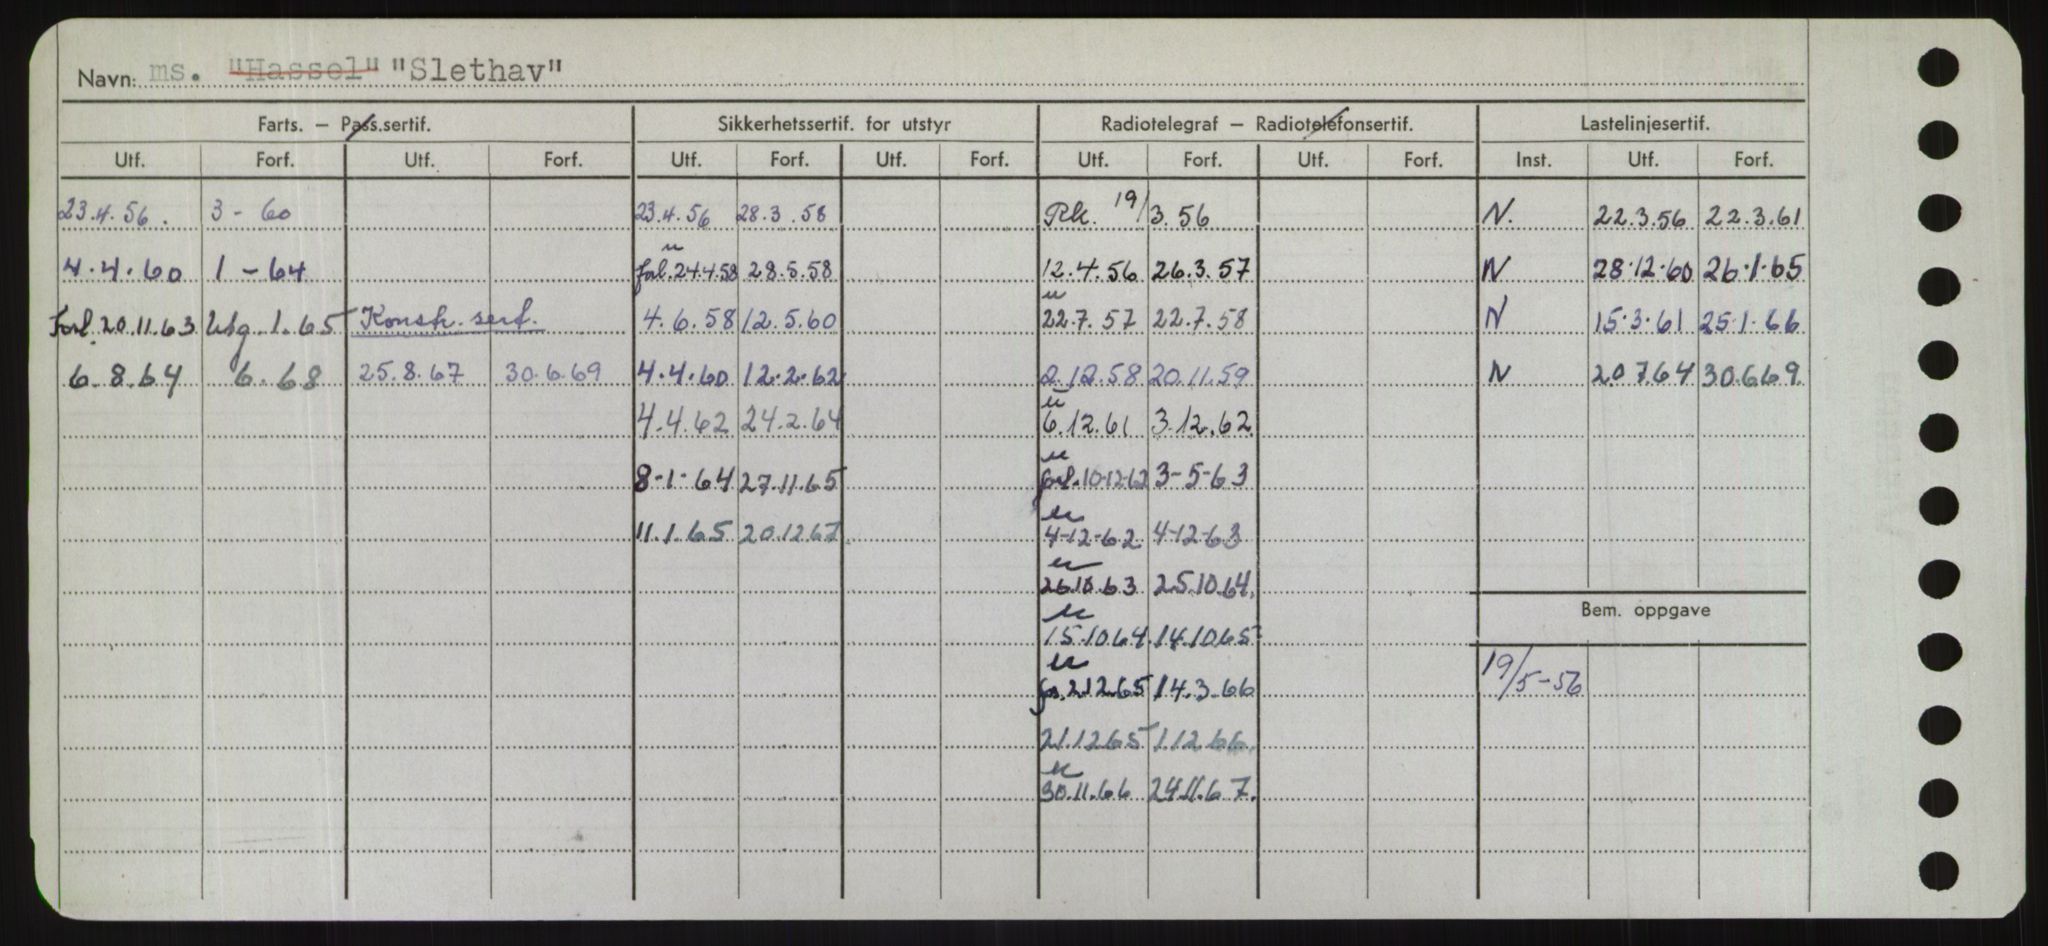 Navn: ms. "Hassel" "Slethav"
Farts. – Pass.sertif. Sikkerhetssertif. for utstyr Radiotelegraf – Radiotelefonsertif. Lastelinjesertif.
Utf. Forf. Utf. Forf. Utf. Forf. Utf. Forf. Utf. Forf. Utf. Forf. Inst. Utf. Forf.
23.4.56. 3 - 60 23.4.56 28.3.58 Rk. 19/3.56 N. 22.3.56 22.3.61
4.4.60 1 - 64 forl. 24.4.58 28.5.58 12.4.56 26.3.57 N 28.12.60 26.1.65
Forl. 20.11.63 Utg. 1.65 Konstr. serf. 4.6.58 12.5.60 22.7.57 22.7.58 N 15.3.61 25.1.66
6.8.64 6.68 25.8.67 30.6.69 4.4.60 12.2.62 2.12.58 20.11.59 N 20.7.64 30.6.69.
4.4.62 24.2.64 6.12.61 3.12.62
8-1-64 27.11.65 forl. 10-12-62 3-5-63
11.1.65 20.12.67. 4-12-62 4-12-63
26.10.63 25.10.64.
Bem. oppgave
15.10.64. 14.10.65
19/5-56
fo. 2.12.65 14.3.66
21.12.65 1.12.66.
30.11.66 24.11.67.